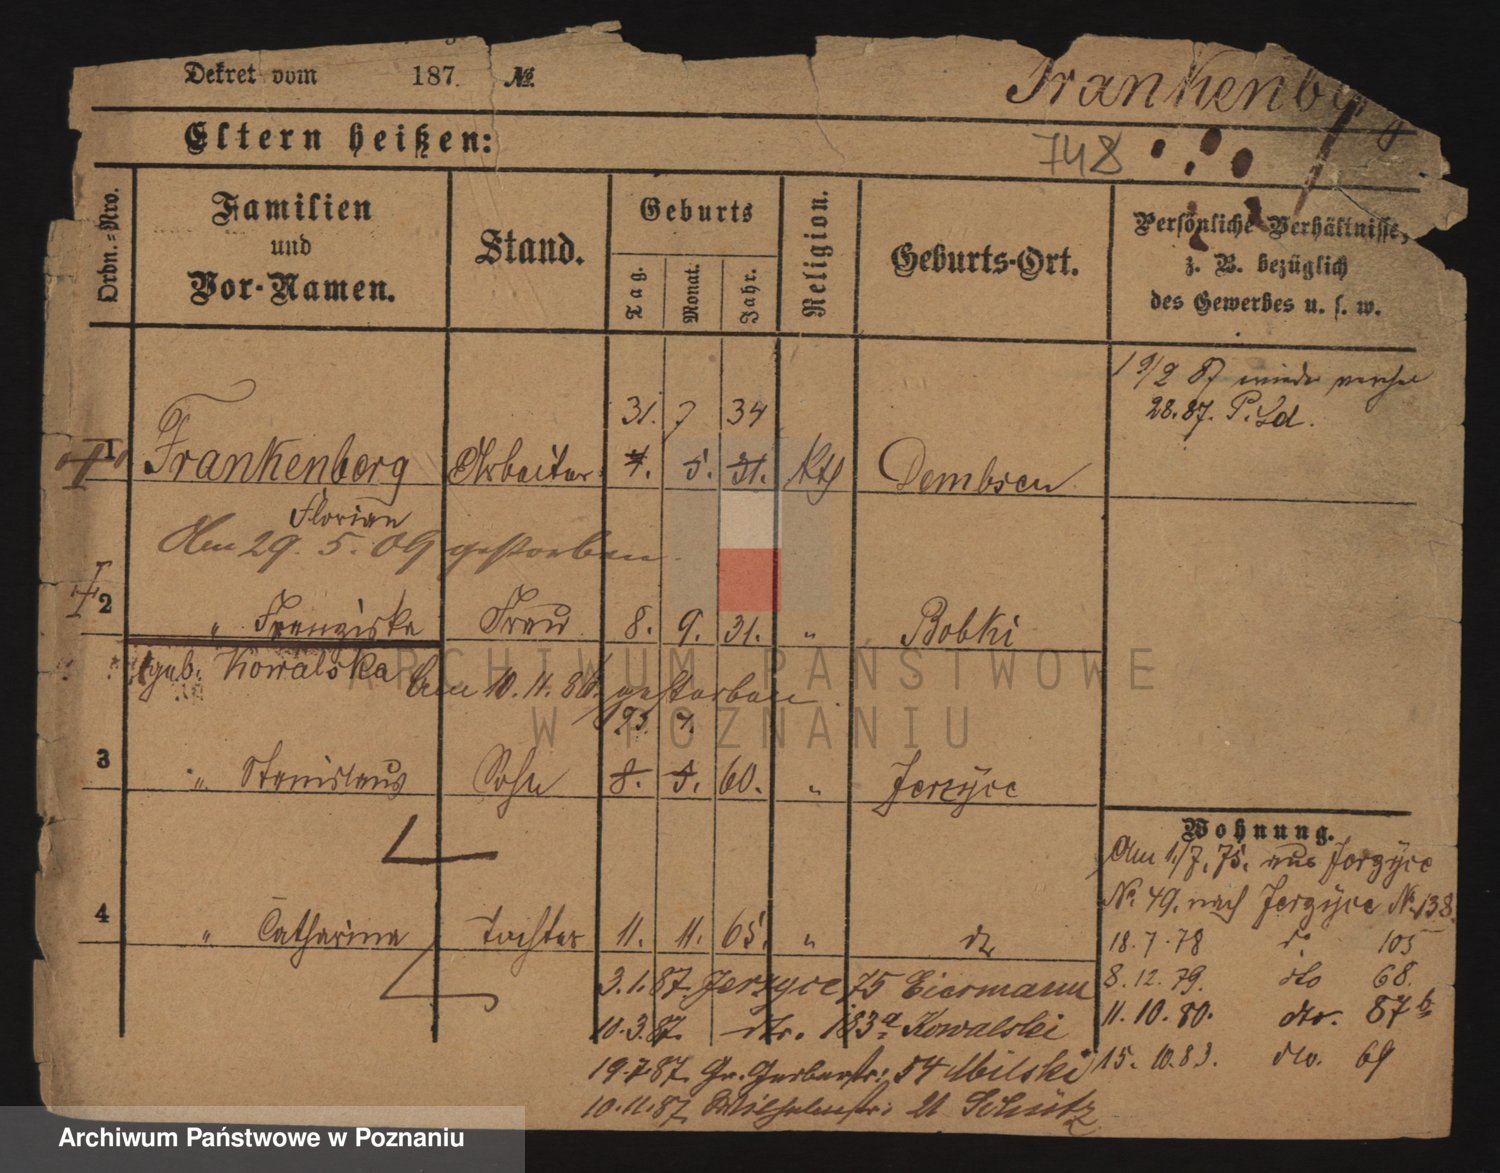 Dekret vom 187. №.
Frankenberg
Eltern heißen:
748
Ordn.-Nro.
Familien
und
Vor-Namen.
Stand.
Geburts
Tag.
Monat.
Jahr.
Religion.
Geburts-Ort.
Persönliche Verhältnisse,
z. B. bezüglich
des Gewerbes u. s. w.
19/2 87
28.87. P.
31. 7 34
1 Frankenberg Arbeiter 5. 31. Kth Dembsen
Florian
Am 29. 5. 09 gestorben
2 " Franziska Frau 8. 9. 31. " Bobki
geb. Kowalska Am 10. 11. 86. gestorben
3 " Stanislaus Sohn 60. " Jerzyce
4 " Catharina Tochter 11. 11. 65. " do
Wohnung.
Am 1/7. 75. aus Jerzyce
No 49. nach Jerzyce No 138.
18. 7. 78 do 105
8. 12. 79. dto 68.
11. 10. 80. dto. 87b
15. 10. 83. dto. 69
3.1.87. Jerzyce 75 Eiermann
10.3.87. dto. 183a Kowalski
19.7.87. Gr. Gerberstr. 54 Milski
10.11.87. Wilhelmstr. 21 Schütz
ARCHIWUM PAŃSTWOWE
W POZNANIU
Archiwum Państwowe w Poznaniu